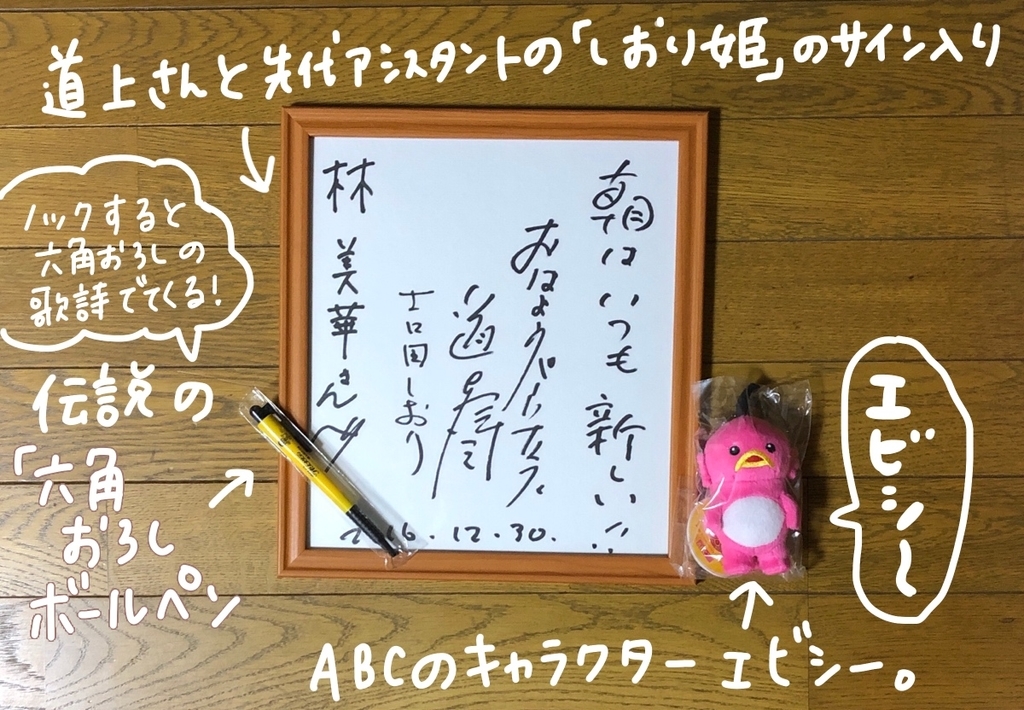 道上さんと先代アシスタントの「しおり姫」のサイン入り
ノックすると
六角おろしの
歌詩でてくる！
伝説の
「六角
おろし
ボールペン
朝はいつも新しい!!
おはようパーソナリティ
道上
吉田しおり
林美華さんへ
2016.12.30.
エビシー
ABCのキャラクターエビシー。